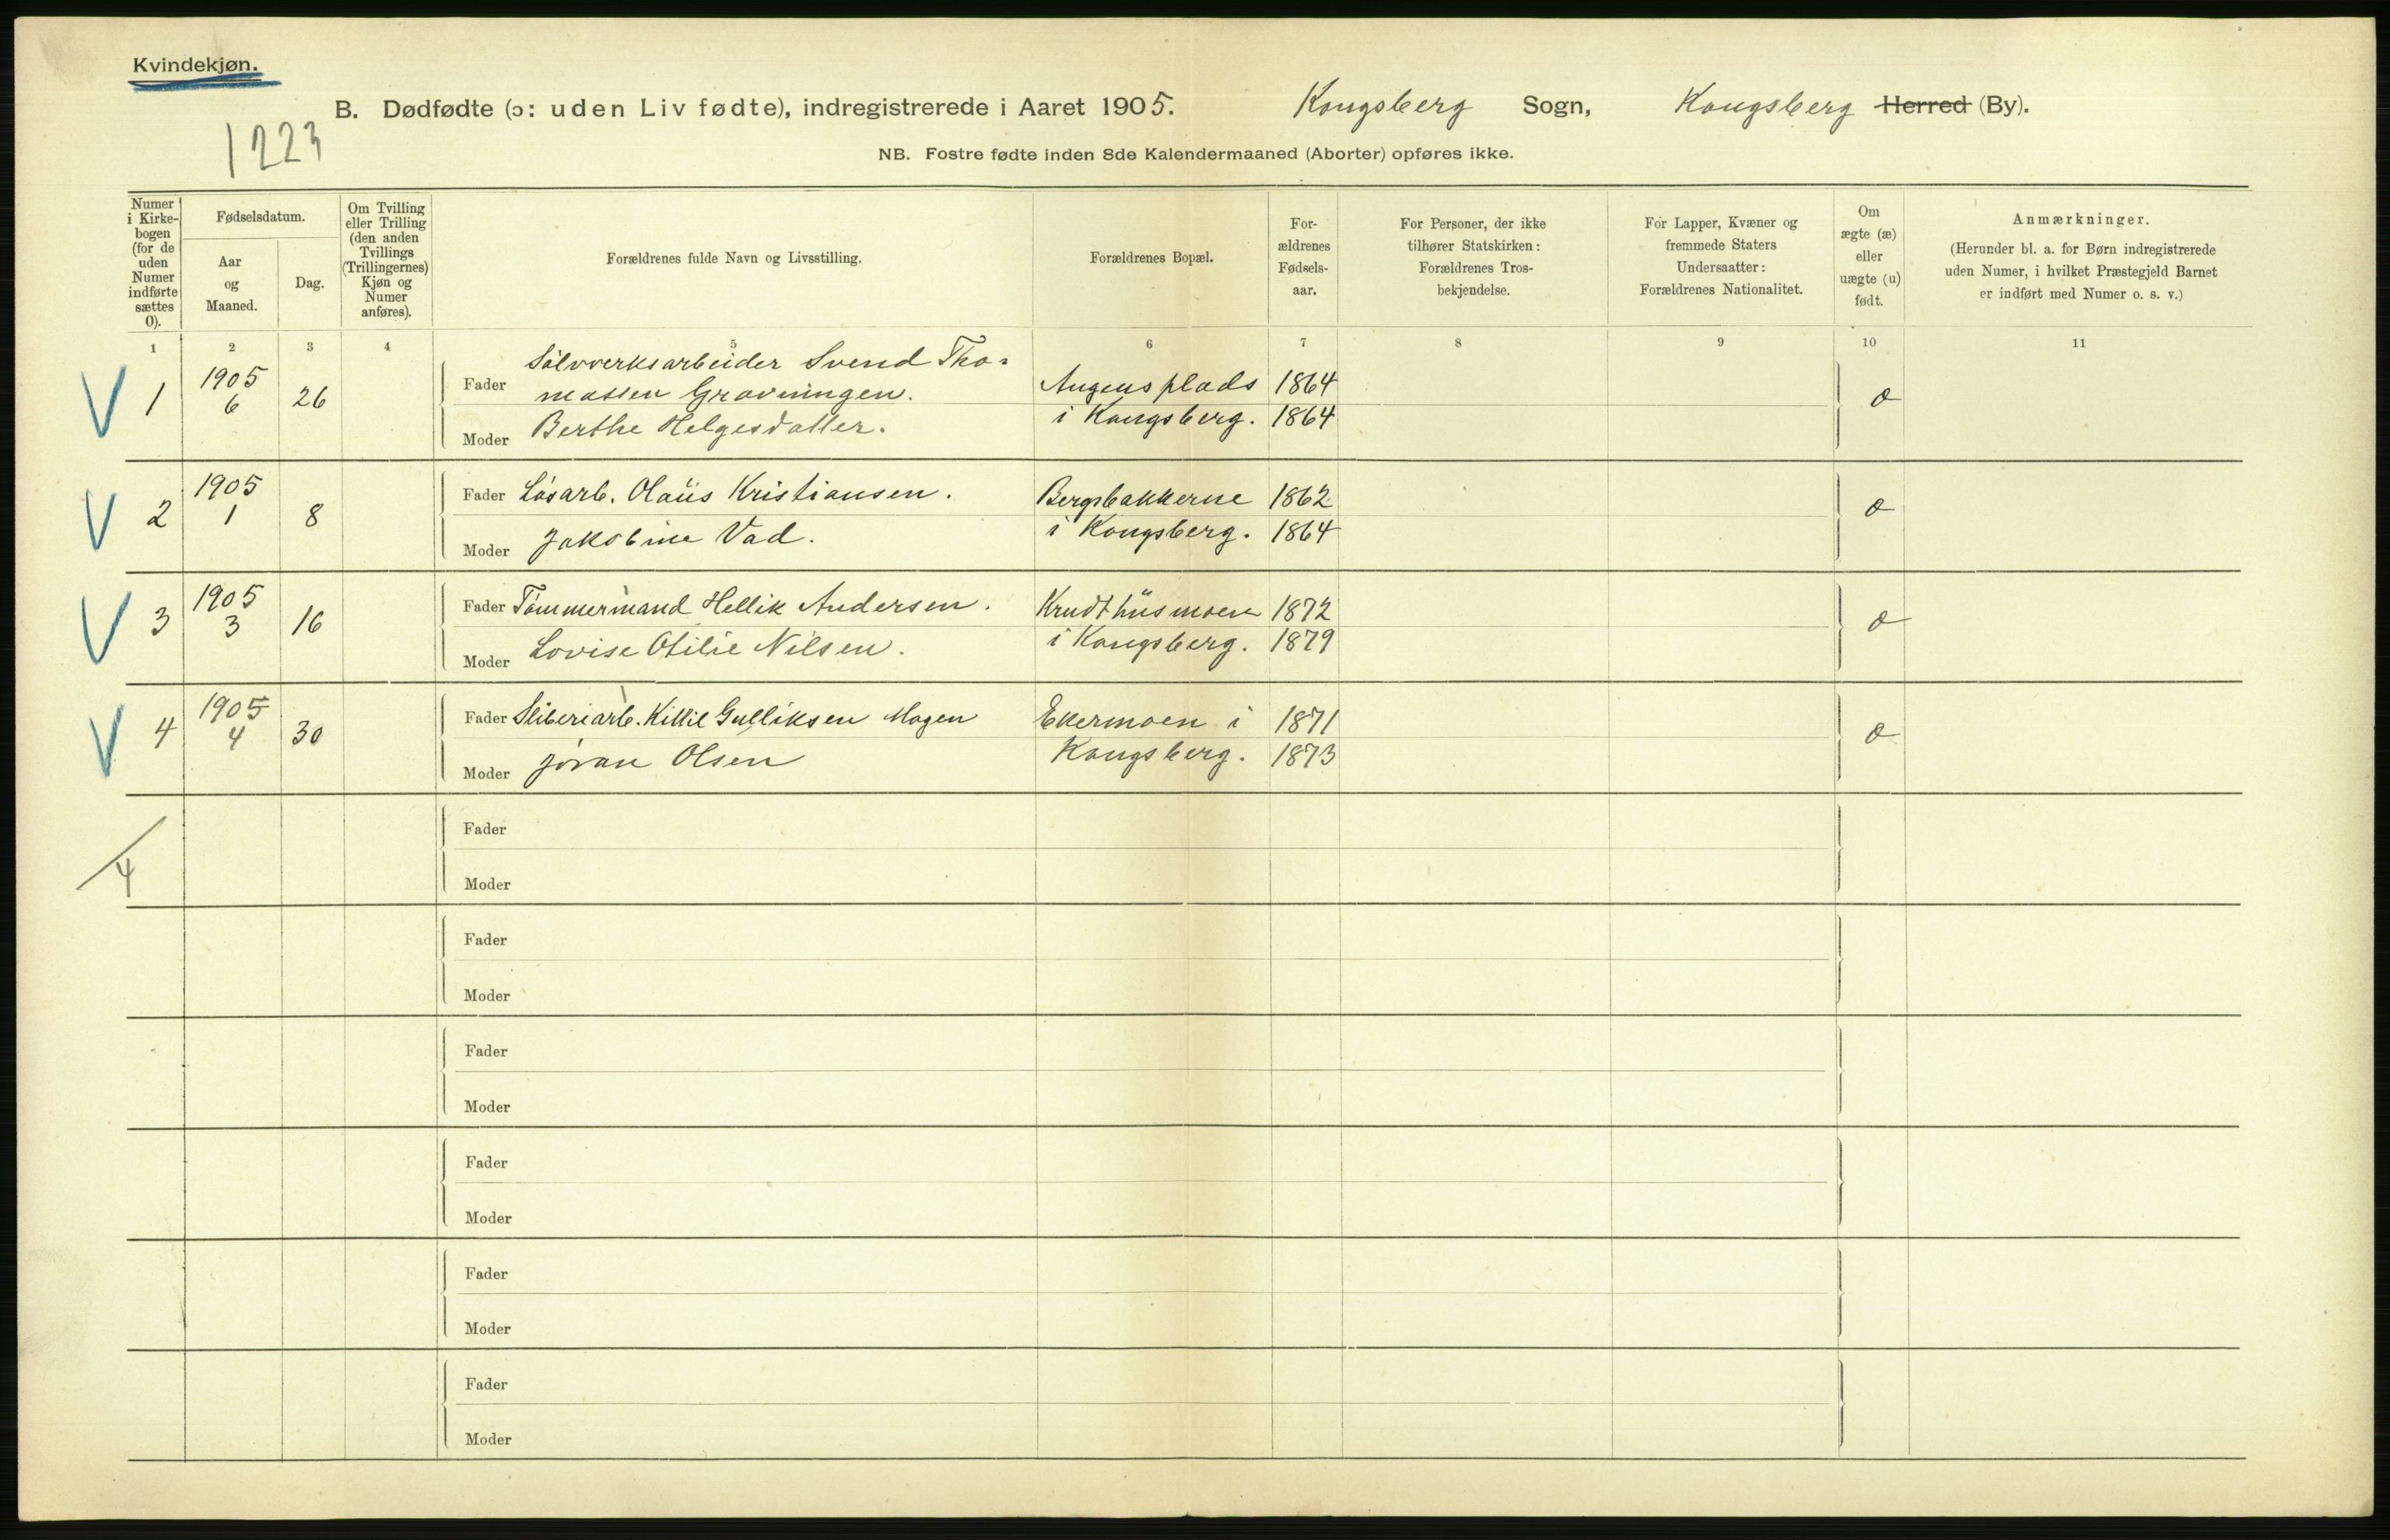 Kvindekjøn.
B. Dødfødte (ɔ: uden Liv fødte), indregistrerede i Aaret 1905. Kongsberg Sogn, Kongsberg Herred (By).
1223
NB. Fostre fødte inden 8de Kalendermaaned (Aborter) opføres ikke.
Numer i Kirkebogen (for de uden Numer indførte sættes 0).
Fødselsdatum.
Aar og Maaned.
Dag.
Om Tvilling eller Trilling (den anden Tvillings (Trillingernes) Kjøn og Numer anføres).
Forældrenes fulde Navn og Livsstilling.
Forældrenes Bopæl.
For-ældrenes Fødsels-aar.
For Personer, der ikke tilhører Statskirken: Forældrenes Tros-bekjendelse.
For Lapper, Kvæner og fremmede Staters Undersaatter: Forældrenes Nationalitet.
Om ægte (æ) eller uægte (u) født.
Anmærkninger. (Herunder bl. a. for Børn indregistrerede uden Numer, i hvilket Præstegjeld Barnet er indført med Numer o. s. v.)
1 2 3 4 5 6 7 8 9 10 11
V 1 1905 6 26 Fader Sølvverksarbeider Svend Tho=
massen Gravningen. Augens plads 1864 æ
Moder Berthe Helgesdatter. i Kongsberg. 1864
V 2 1905 1 8 Fader Løsarb. Olaus Kristiansen. Bergsbakkerne 1862 æ
Moder Jakobine Vad. i Kongsberg. 1864
V 3 1905 3 16 Fader Tømmermand Hellik Andersen. Krudthusmoen 1872 æ
Moder Lovise Otilie Nilsen. i Kongsberg. 1879
V 4 1905 4 30 Fader Sliberiarb. Kittil Gulliksen Mogen Ekermoen i 1871 æ
Moder Jøran Olsen Kongsberg. 1873
4
Fader
Moder
Fader
Moder
Fader
Moder
Fader
Moder
Fader
Moder
Fader
Moder